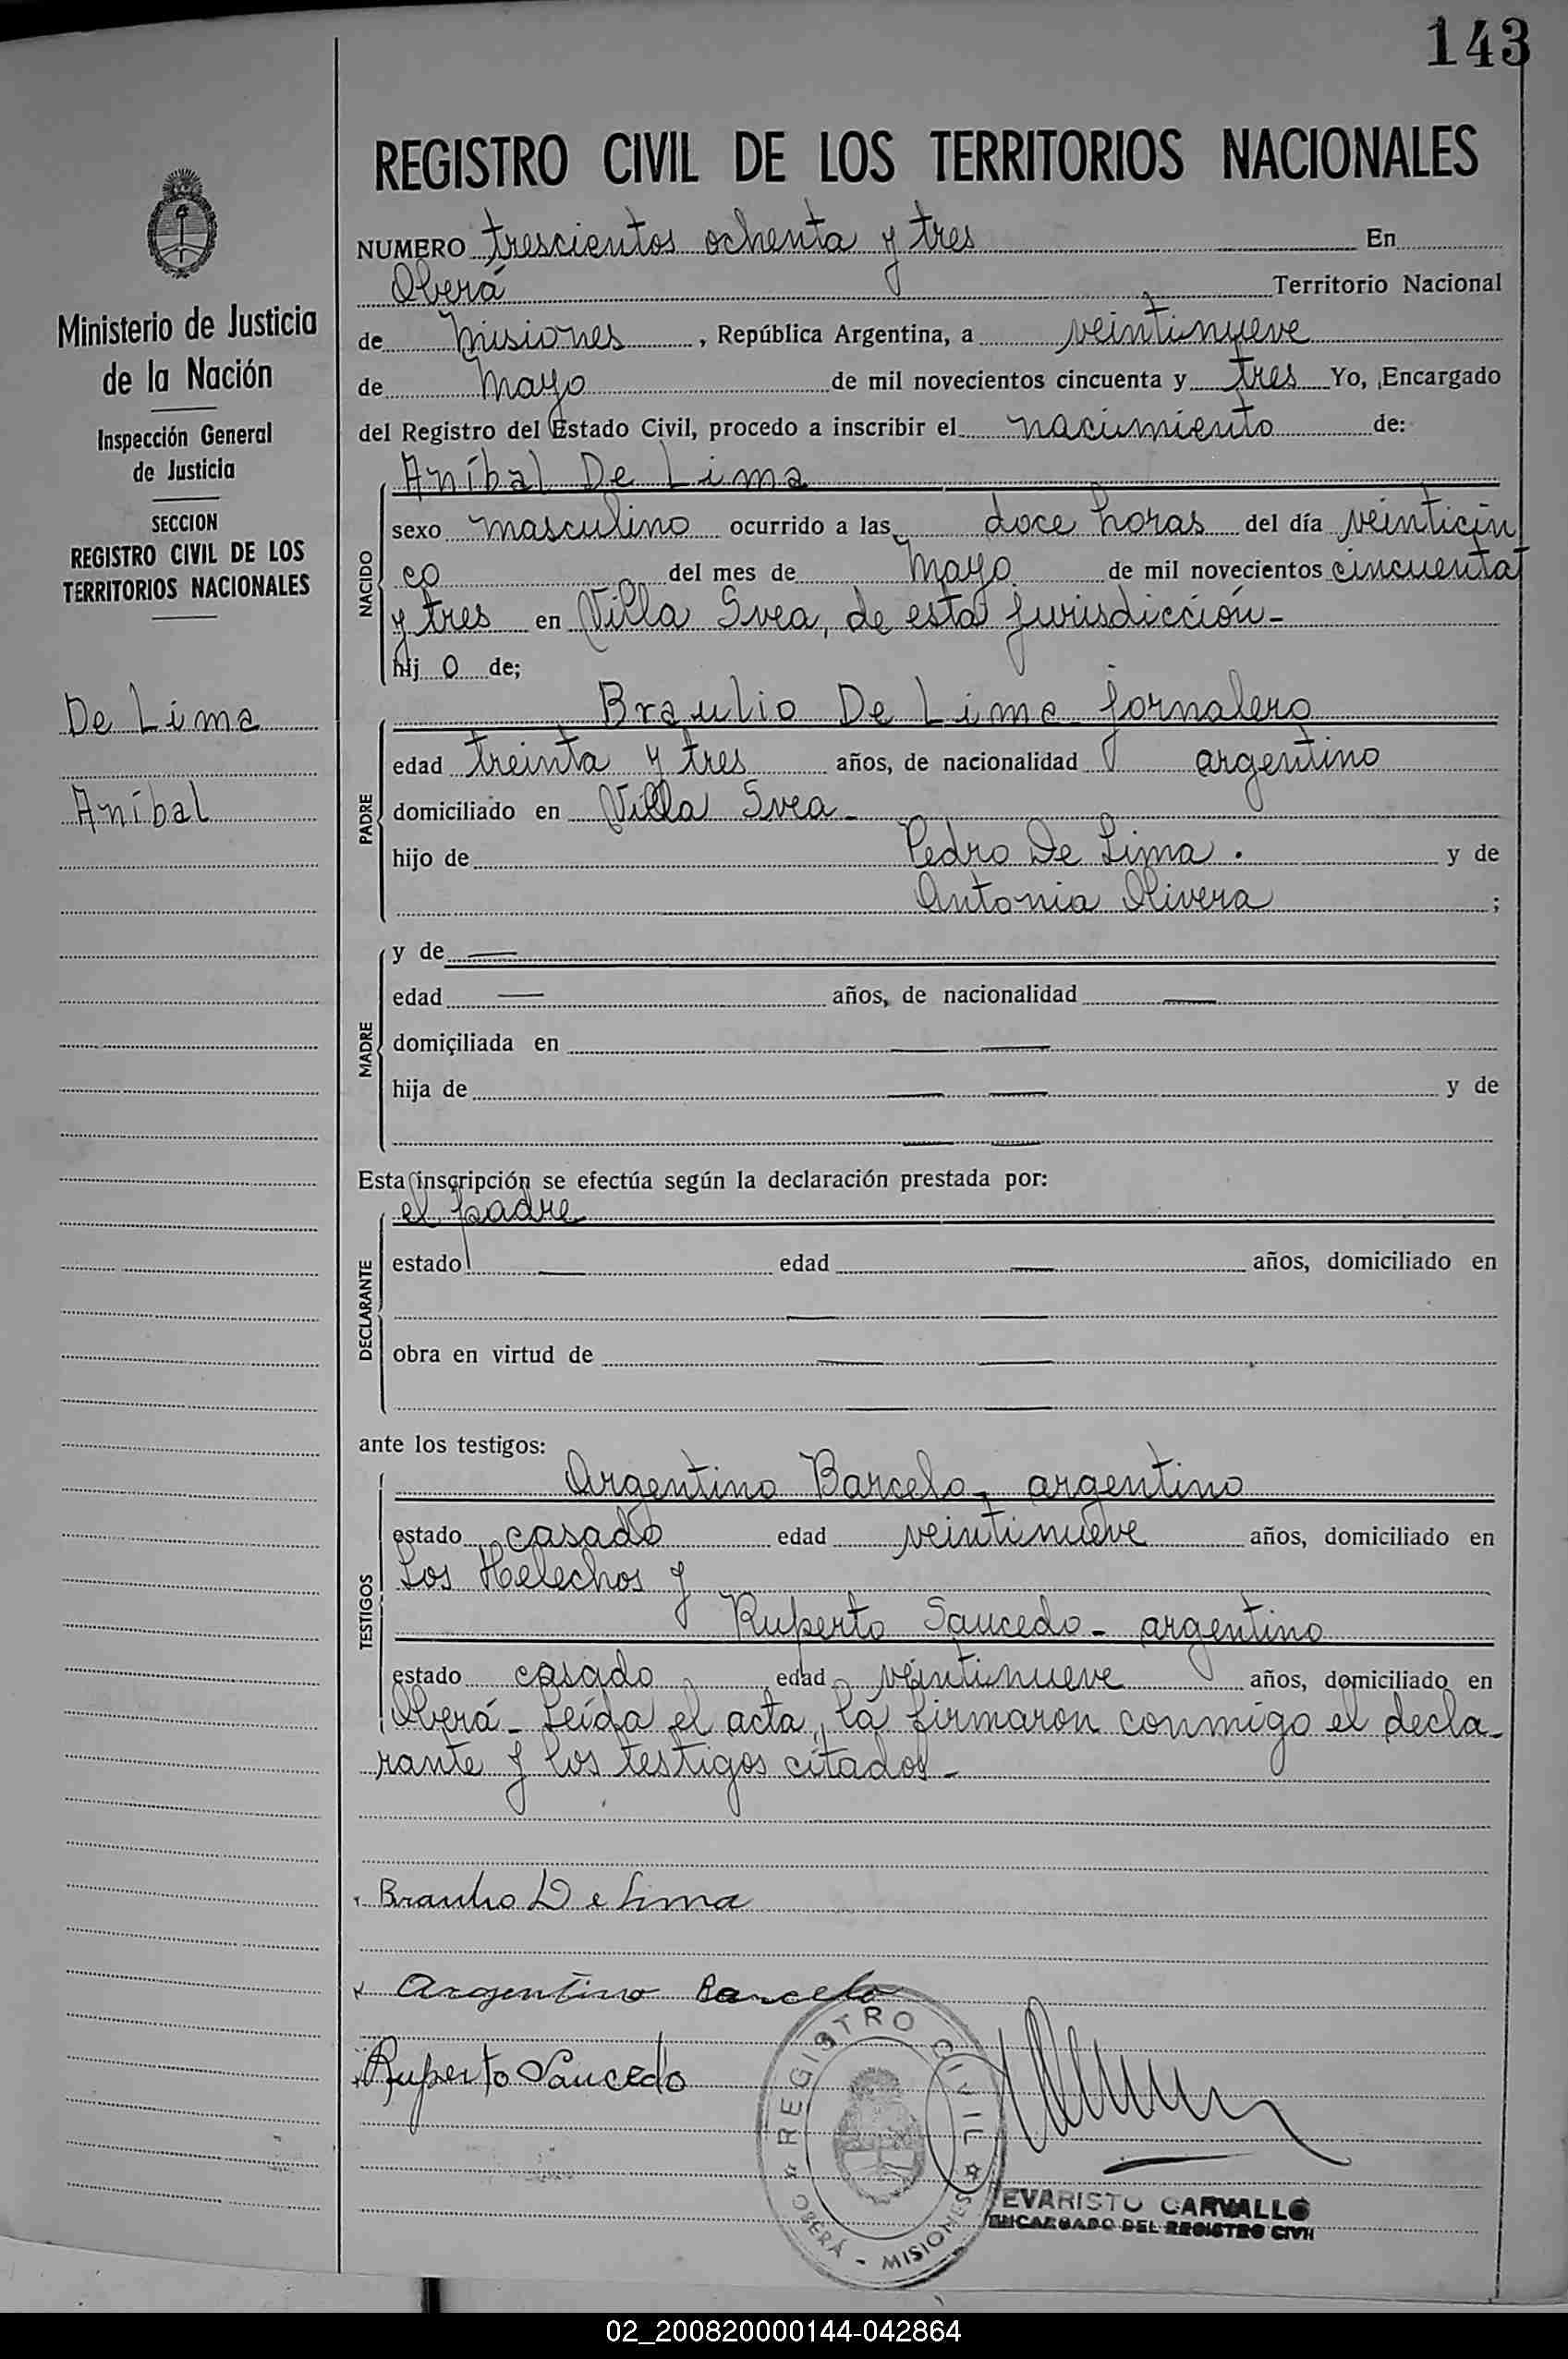 143
REGISTRO CIVIL DE LOS TERRITORIOS NACIONALES
Ministerio de Justicia
de la Nación
Inspección General
de Justicia
SECCION
REGISTRO CIVIL DE LOS
TERRITORIOS NACIONALES
De Lima
Aníbal
NUMERO trescientos ochenta y tres En
Oberá Territorio Nacional
de Misiones, República Argentina, a veintinueve
de Mayo de mil novecientos cincuenta y tres Yo, Encargado
del Registro del Estado Civil, procedo a inscribir el nacimiento de:
NACIDO
Aníbal De Lima
sexo masculino ocurrido a las doce horas del día veinticin
co del mes de Mayo de mil novecientos cincuenta
y tres en Villa Svea, de esta jurisdicción-
hij o de;
PADRE
Braulio De Lima jornalero
edad treinta y tres años, de nacionalidad argentino
domiciliado en Villa Svea-
hijo de Pedro De Lima. y de
Antonia Olivera;
MADRE
y de —
edad — años, de nacionalidad —
domiciliada en — —
hija de — — y de
— —
Esta inscripción se efectúa según la declaración prestada por:
DECLARANTE
el padre
estado — edad — años, domiciliado en
— —
obra en virtud de — —
— —
ante los testigos:
TESTIGOS
Argentino Barcelo- argentino
estado casado edad veintinueve años, domiciliado en
Los Helechos y
Ruperto Saucedo- argentino
estado casado edad veintinueve años, domiciliado en
Oberá- Leída el acta, la firmaron conmigo el decla-
rante y los testigos citados-
Braulio De Lima
Argentino Barcelo
Ruperto Saucedo
REGISTRO CIVIL
OBERÁ - MISIONES
EVARISTO CARVALLO
ENCARGADO DEL REGISTRO CIVIL
02_200820000144-042864